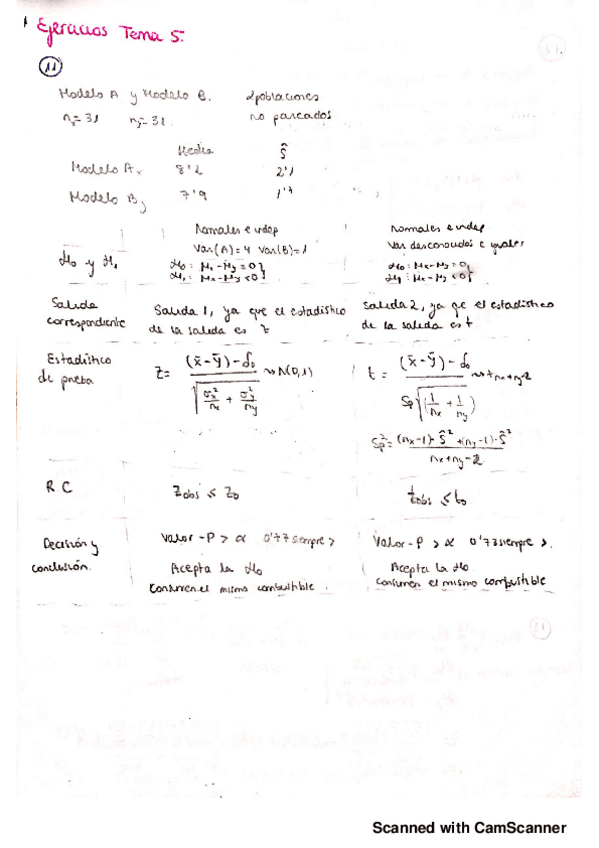 Ejercicios Tema 5.
11
Modelo A y Modelo B. 2 poblaciones
nx=31 ny=31. no pareados
Media Ŝ
Modelo Ax 8'2 2'1
Modelo By 7'9 1'7
Normales e indep
Var(A)=4 Var(B)=1
Normales e indep
Var desconocidas e iguales
H0 y H1
H0: μx-μy=0}
H1: μx-μy<0}
H0: μx-μy=0}
H1: μx-μy<0}
Salida correspondiente
Salida 1, ya que el estadístico
de la salida es z
Salida 2, ya qe el estadístico
de la salida es t
Estadístico
de prueba
z = ((x̄-ȳ) - δ0) / √(σx²/nx + σy²/ny) ~> N(0,1)
t = ((x̄-ȳ) - δ0) / (Sp √(1/nx + 1/ny)) ~> t nx+ny-2
Sp² = ((nx-1)·Ŝ² + (ny-1)·Ŝ²) / (nx+ny-2)
R C
Zobs ≤ Z0
tobs ≤ t0
Decisión y
conclusión.
Valor-P > α 0'77 siempre >
Acepta la H0
Consumen el mismo combustible.
Valor-P > α 0'73 siempre >.
Acepta la H0.
Consumen el mismo combustible
Scanned with CamScanner